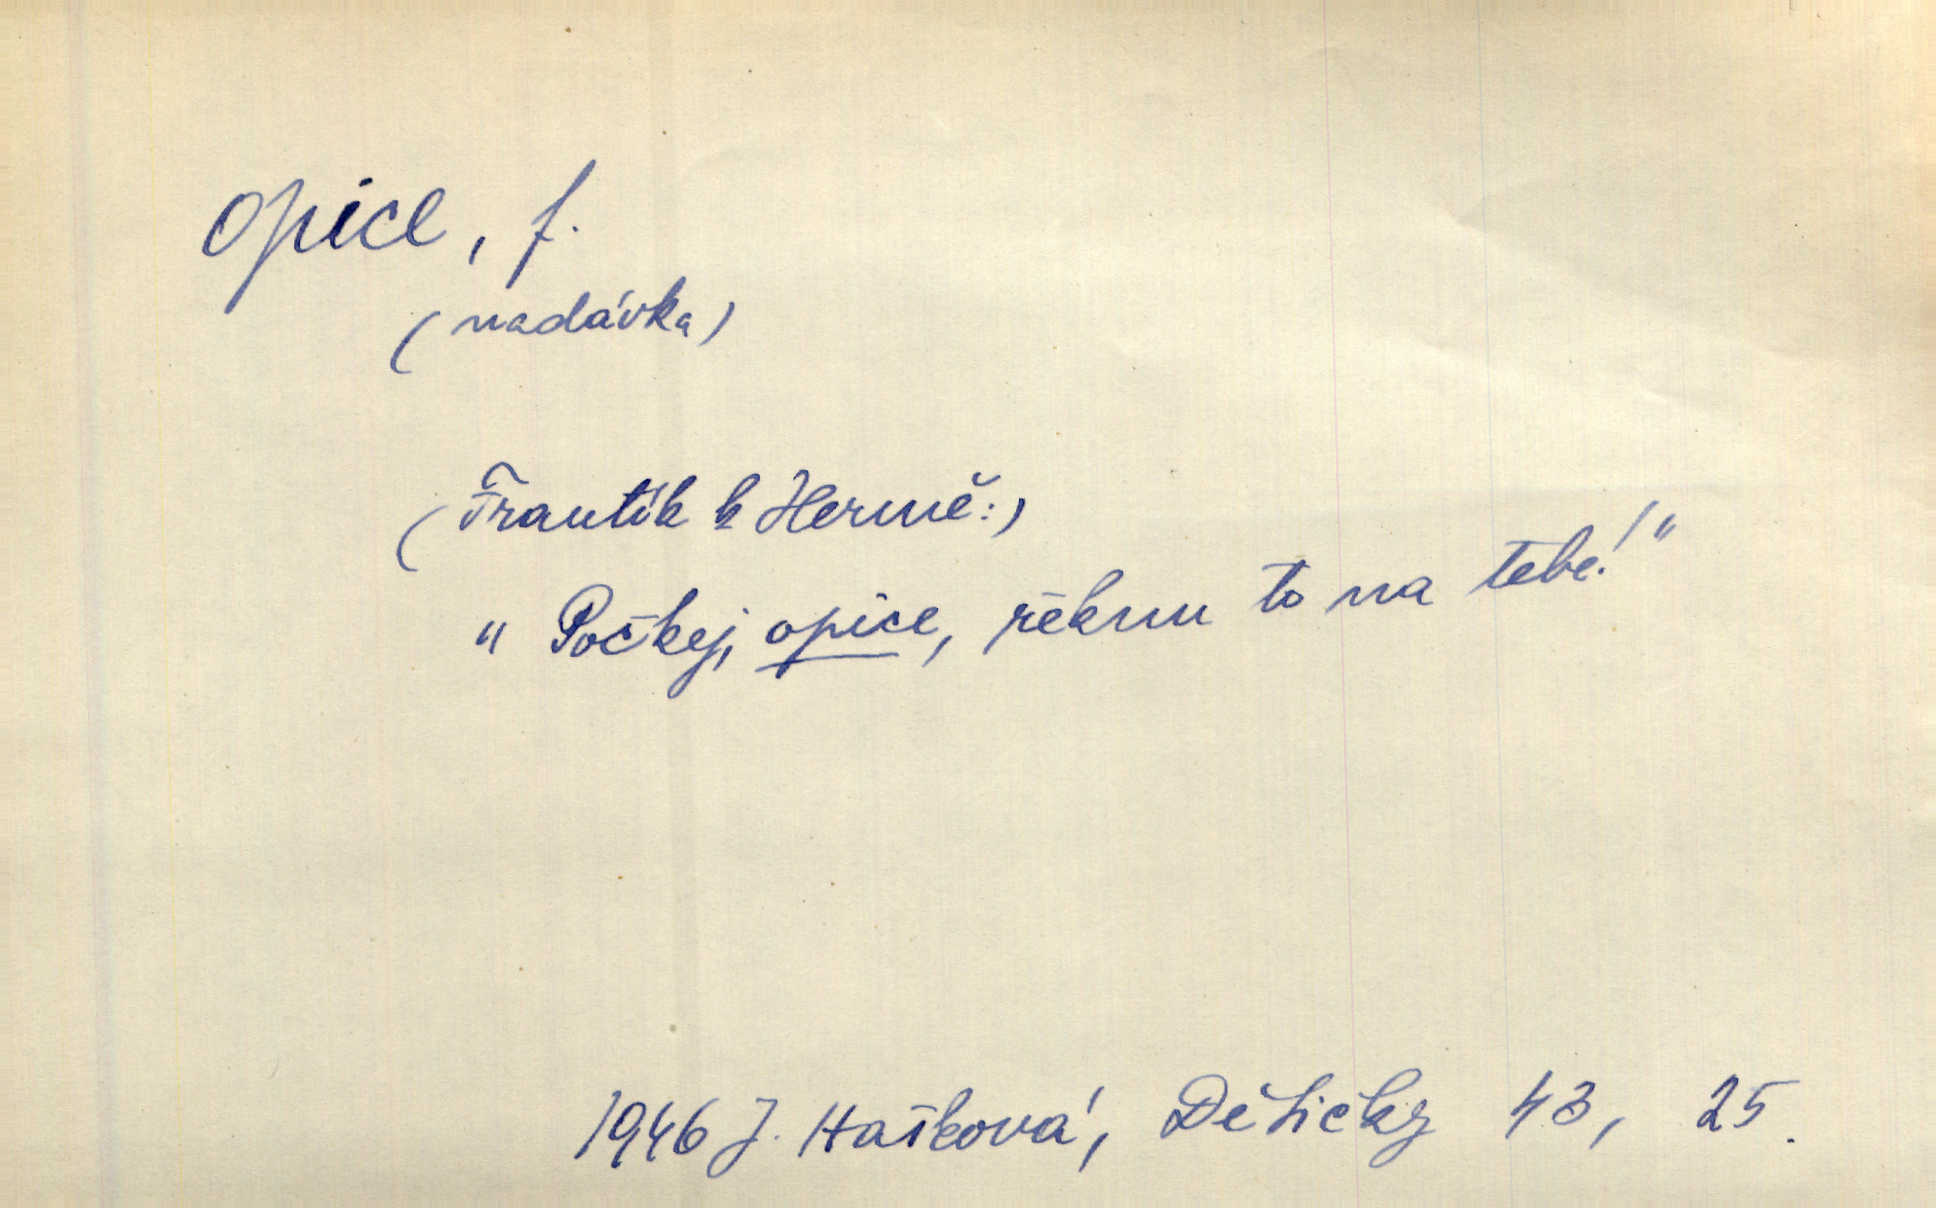 opice, f.
(nadávka)
(Frantík k Hermě:)
" Počkej, opice, řeknu to na tebe! "
1946 J. Hašková, Dětičky 43, 25.